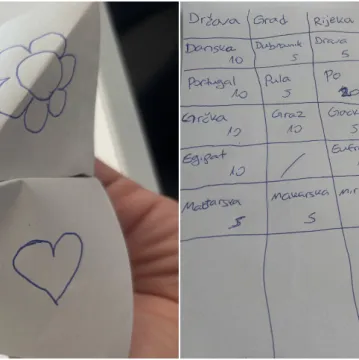 Država Grad Rijeka
Danska Dubrovnik Drava
10 5 5
Portugal Pula Po
10 5 20
Grčka Graz
10 10
Egipat /
10
Mađarska Makarska
5 5